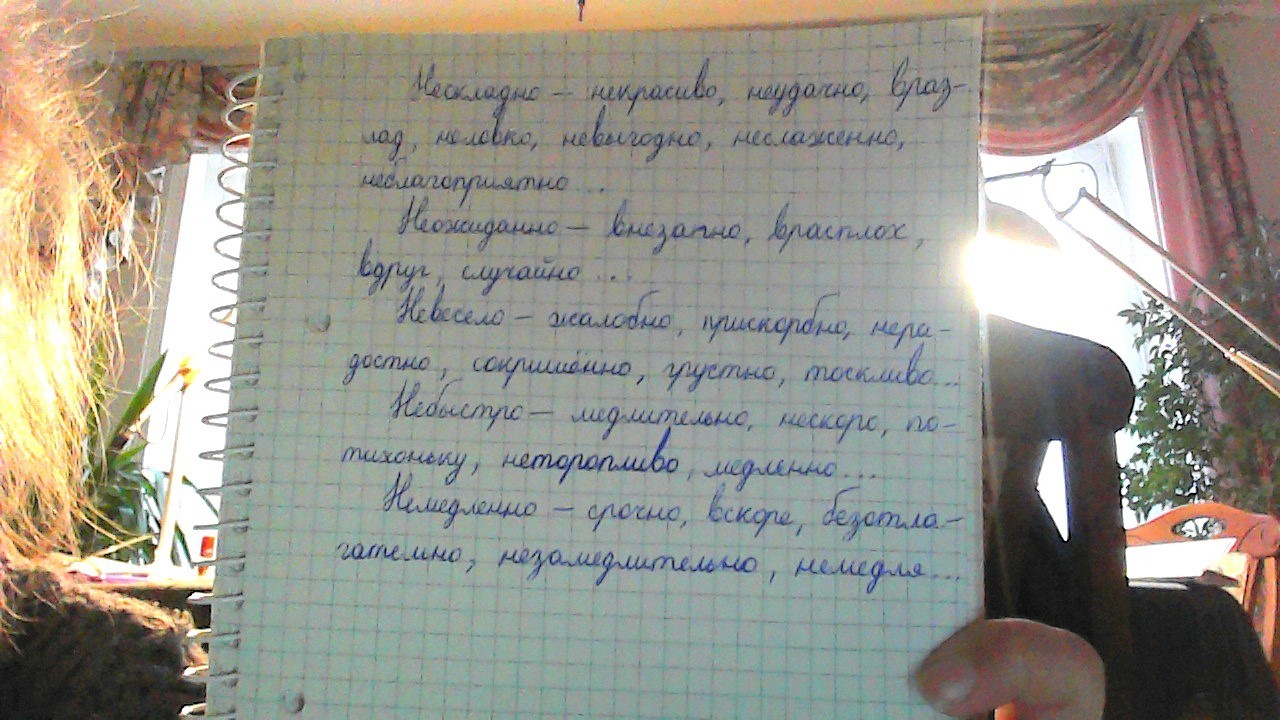 Нескладно – некрасиво, неудачно, враз-
лад, неловко, невыгодно, неслаженно,
неблагоприятно...
Неожиданно – внезапно, врасплох,
вдруг, случайно...
Невесело – жалобно, прискорбно, нера-
достно, сокрушённо, грустно, тоскливо...
Небыстро – медлительно, нескоро, по-
тихоньку, неторопливо, медленно...
Немедленно – срочно, вскоре, безотла-
гательно, незамедлительно, немедля...